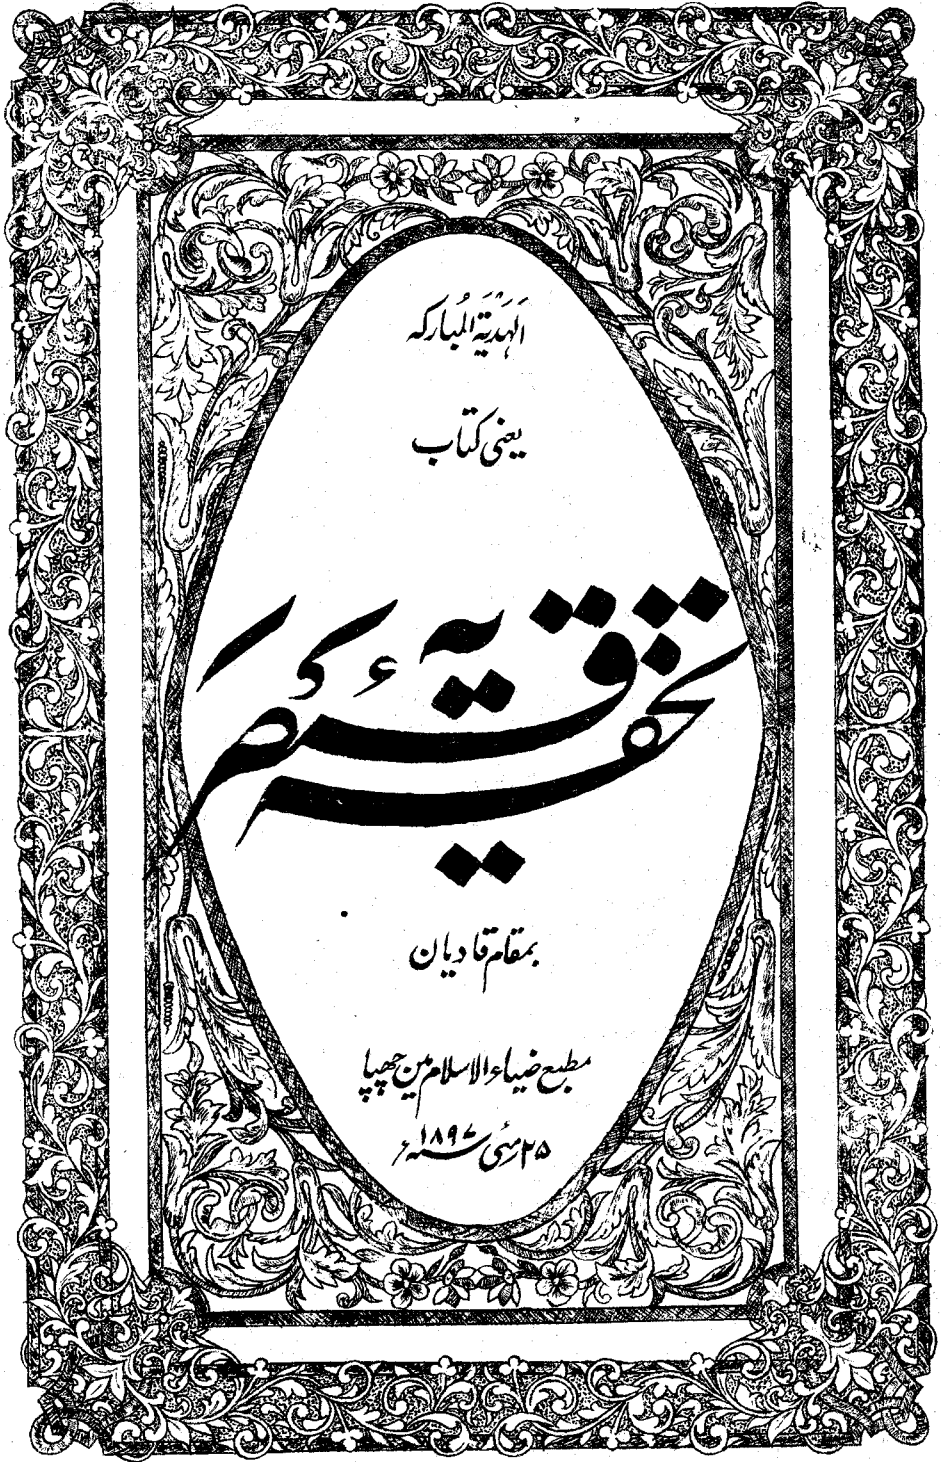 اَلهَدْيَةَ المُبارکه
یعنی کتاب
تحفۂ قیصریہ
بمقام قادیان
مطبع ضیاء الاسلام مین چھپا
۲۵ مئی سنہ ۱۸۹۷ء